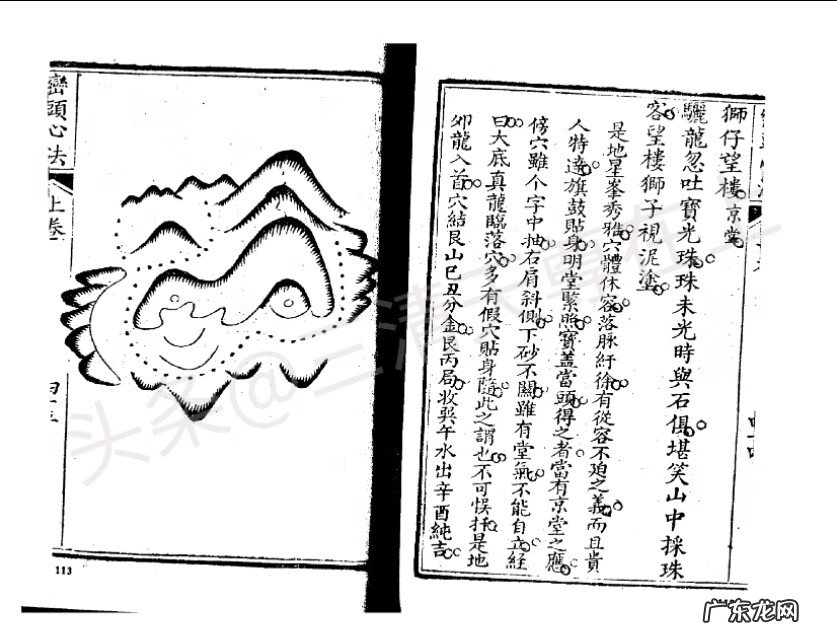 獅仔望樓 京堂
驪龍忽吐寶光珠珠未光時與石俱堪笑山中採珠
客望樓獅子視泥塗
是地星峯秀雅穴體休容落脉紆徐有從容不迫之義而且貴
人特達旗鼓貼身明堂緊照寶蓋當頭得之者當有京堂之應
傍穴雖个字中抽右肩斜側下砂不關雖有堂氣不能自立經
曰大底真龍臨落穴多有假穴貼身隨此之謂也不可悮扦是地
卯龍入首穴結艮山巳丑分金艮丙局收巽午水出辛酉純吉
巒頭心法
上卷
113
头条@三清天尊在一
广东龙网